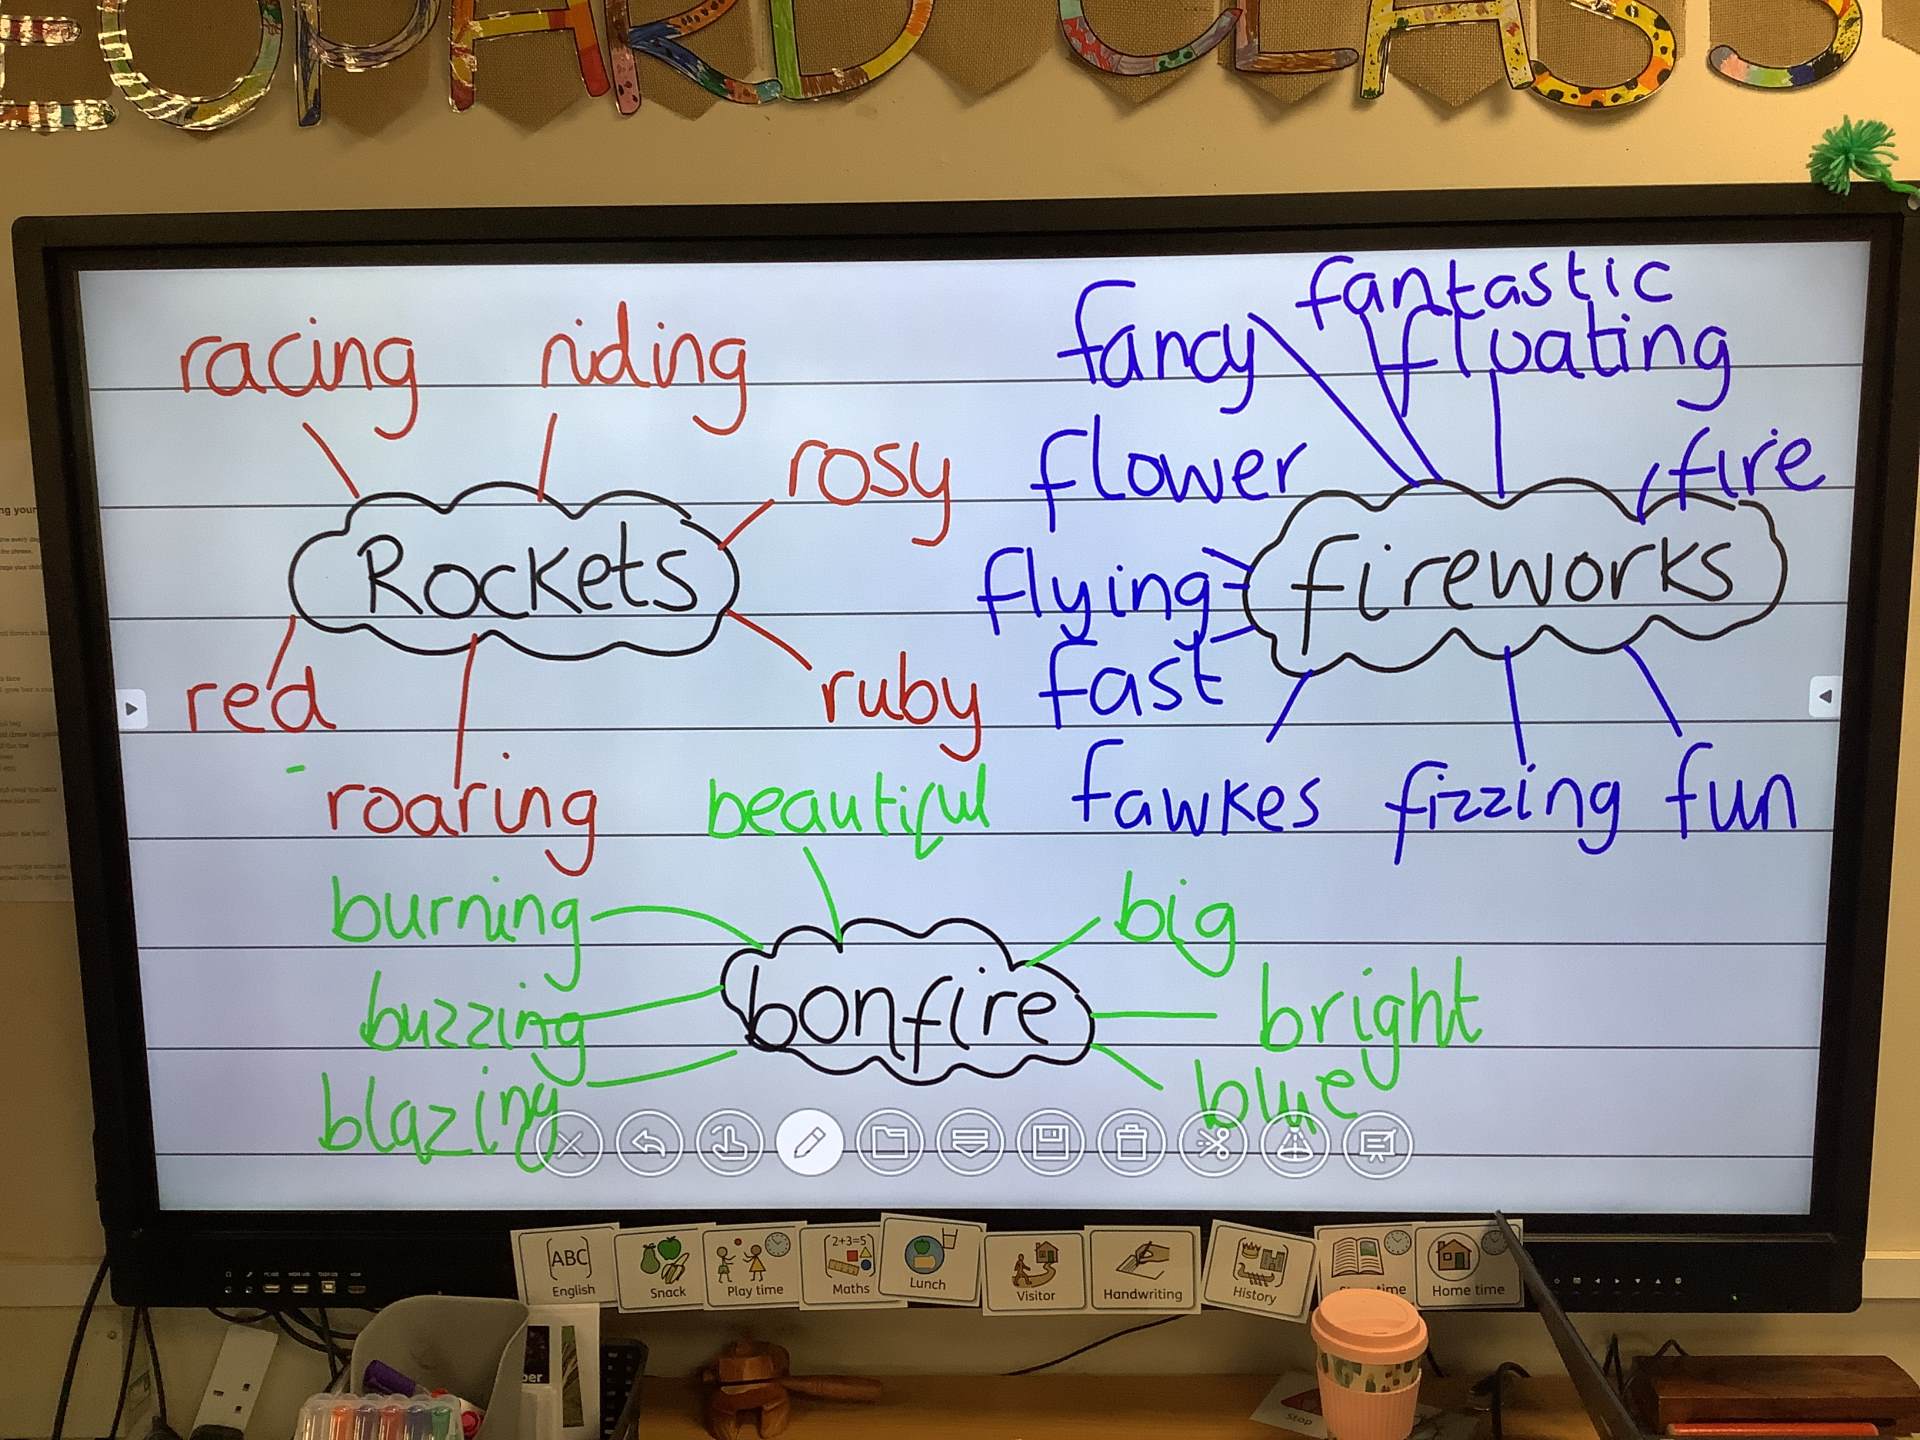 EOPARD CLASS
racing
riding
rosy
Rockets
red
roaring
ruby
fancy
fantastic
floating
flower
fire
flying
fireworks
fast
fawkes
fizzing
fun
beautiful
burning
big
buzzing
bonfire
bright
blazing
blue
ABC
English
Snack
Play time
2+3=5
Maths
Lunch
Visitor
Handwriting
History
time
Home time
Stop